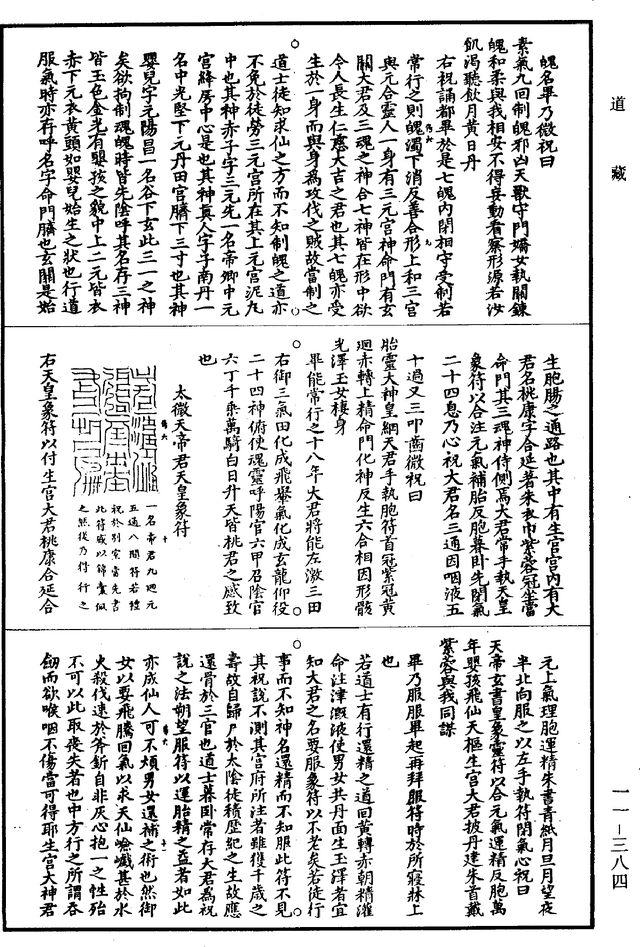 道藏
魄名畢乃微祝曰
素氣九回制魄邪凶天獸守門嬌女執關鍊
魄和柔與我相安不得妄動看察形源若汝
飢渴聽飲月黃日丹
右祝誦都畢於是七魄內閉相守受制若
常行之則魄濁下消反善合形上和三官
與元合靈人一身有三元宮神命門有玄
關大君及三魂之神合七神皆在形中欲
令人長生仁慈大吉之君也其七魄亦受
生於一身而與身為攻伐之賊故當制之
道士徒知求仙之方而不知制魄之道亦
不免於徒勞三元宮所在其上元宮泥丸
中也其神赤子字三元先一名帝卿中元
宮絳房中心是也其神真人字子南丹一
名中光堅下元丹田宮臍下三寸也其神
嬰兒字元陽昌一名谷下玄此三一之神
矣欲拘制魂魄時皆先陰呼其名存三神
皆玉色金光有嬰孩之貌中上二元皆衣
赤下元衣黃頭如嬰兒始生之狀也行道
服氣時亦存呼名字命門臍也玄關是始
生胞腸之通路也其中有生宮宮內有大
君名桃康字合延著朱衣巾紫蓉冠坐當
命門其三魂神侍側焉大君常手執天皇
象符以合注元氣補胎反胞暮卧先閉氣
二十四息乃心祝大君名三通因咽液五
十過又三叩齒微祝曰
胎靈大神皇綱天君手執胞符首冠紫冠黃
迴赤轉上精命門化神反生六合相因形骸
光澤玉女棲身
畢能常行之十八年大君將能左激三田
右御三氣田化成飛轝氣化成玄龍仰役
二十四神俯使魂靈呼陽官六甲召陰官
六丁千乘萬騎白日升天皆桃君之感致
也
太微天帝君天皇象符
一名帝君九迴元
五通八間符若祝
祝於別室當先書
此符或以錦囊佩
之然後乃付行之
右天皇象符以付生宮大君桃康合延合
元上氣理胞運精朱書青紙月旦月望夜
半北向服之以左手執符閉氣心祝曰
天帝玄書皇象靈符以合元氣運精反胞萬
年嬰孩飛仙天樞生宮大君披丹建朱首戴
紫蓉與我同謀
畢乃服服畢起再拜服符時於所寢牀上
也
若道士有行還精之道回黃轉赤朝精灌
命注津溉液使男女共丹面生玉澤者宜
知大君之名要服象符以不老矣若徒行
事而不知神名還精而不知服此符不見
其祝說不測其宮府所注者雖獲千歲之
壽故自歸尸於太陰徒積歷紀之生故應
還骨於三官也道士暮卧常存大君為祝
說之法朔望服符以運胎精之益者如此
亦成仙人可不煩男女還補之術也然御
女以要飛騰回氣以求天仙嶮巇甚於水
火殺伐速於斧斨自非灰心抱一之性殆
不可以此取喪失者也中方行之所謂吞
劒而欲喉咽不傷當可得耶生宮大神君
一一－三八四